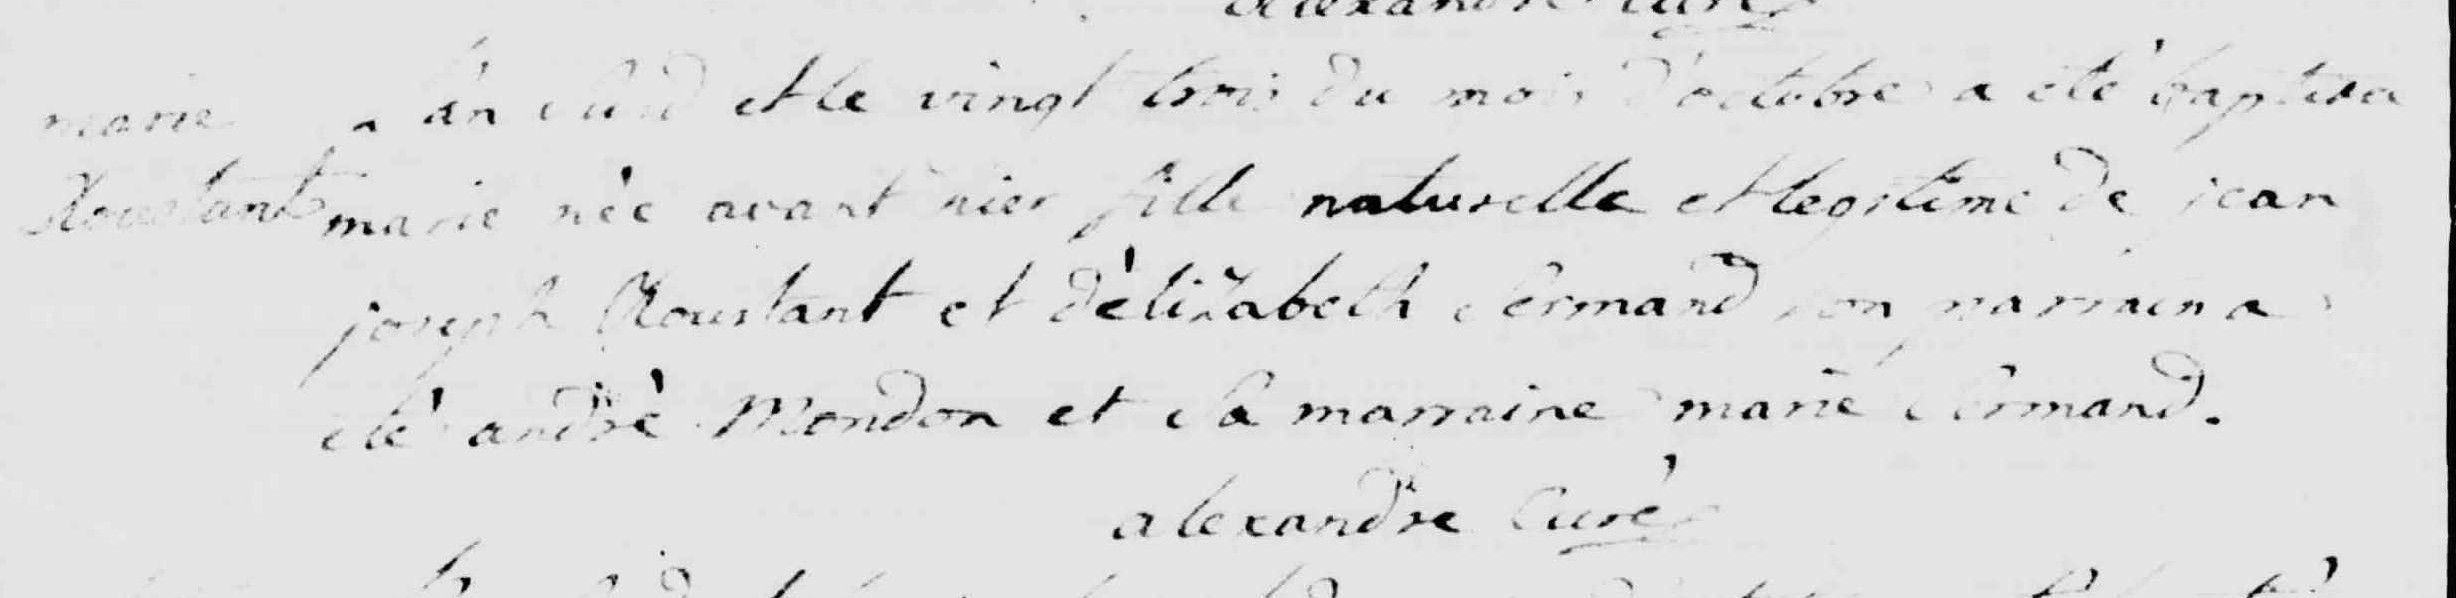 alexandre curé
marie l'an susd et le vingt trois du mois d'octobre a eté baptisée
Roustant marie née avant hier fille naturelle et legitime de jean
joseph Roustant et d'élizabeth sermand son parrain a
été andré Mondon et sa marraine marie sermand.
alexandre Curé